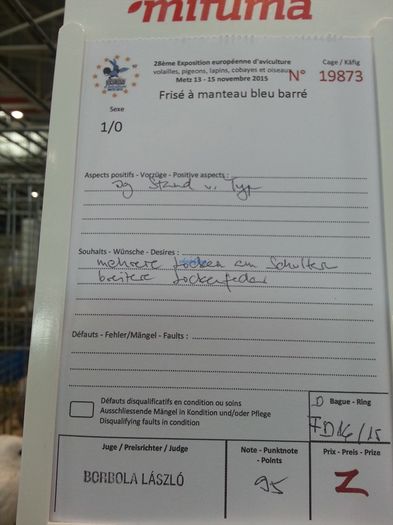 mifuma
28ème Exposition européenne d'aviculture
volailles, pigeons, lapins, cobayes et oiseaux
Metz 13 - 15 novembre 2015
Cage / Käfig
N° 19873
Frisé à manteau bleu barré
Sexe
1/0
Aspects positifs - Vorzüge - Positive aspects :
sg Stand u. Typ
Souhaits - Wünsche - Desires :
mehrere Locken am Schulter
breitere Lockenfeder
Défauts - Fehler/Mängel - Faults :
Défauts disqualificatifs en condition ou soins
Ausschliessende Mängel in Kondition und/oder Pflege
Disqualifying faults in condition
D Bague - Ring
Juge / Preisrichter / Judge
BORBOLA LÁSZLÓ
Note - Punktnote - Points
95
Prix - Preis - Prize
Z